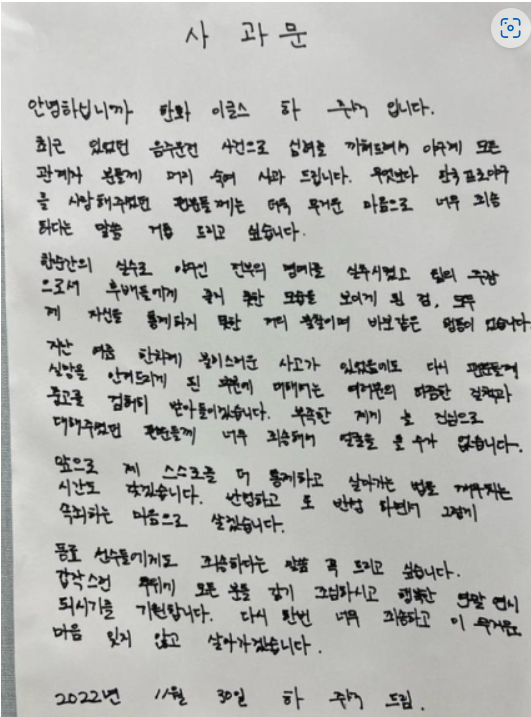 사 과 문
안녕하십니까 한화 이글스 하 주석 입니다.
최근 있었던 음주운전 사건으로 심려를 끼쳐드려서 야구계 모든
관계자 분들께 머리 숙여 사과 드립니다. 무엇보다 한국프로야구
를 사랑해주셨던 팬분들께는 더욱 무거운 마음으로 너무 죄송
하다는 말씀 거듭 드리고 싶습니다.
한순간의 실수로 야구인 전부의 명예를 실추시켰고 팀의 주장
으로서 후배들에게 곧지 못한 모습을 보이게 된 점, 모두
제 자신을 통제하지 못한 저의 불찰이며 바보같은 행동이 었습니다
지난 여름 한차례 불미스러운 사고가 있었음에도 다시 팬분들께
실망을 안겨드리게 된 부분에 대해서는 여러분의 따끔한 질책과
충고를 겸허히 받아들이겠습니다. 부족한 저에게 늘 진심으로
대해주셨던 팬분들께 너무 죄송해서 얼굴을 들 수가 없습니다.
앞으로 제 스스로를 더 통제하고 살아가는 법을 깨우치는
시간도 갖겠습니다. 반성하고 또 반성 하면서 그렇게
속죄하는 마음으로 살겠습니다.
동료 선수들에게도 죄송하다는 말씀 꼭 드리고 싶습니다.
갑작스런 추위에 모든 분들 감기 조심하시고 행복한 연말 연시
되시기를 기원합니다. 다시 한번 너무 죄송하고 이 무거운
마음 잊지 않고 살아가겠습니다.
2022년 11월 30일 하 주석 드림.